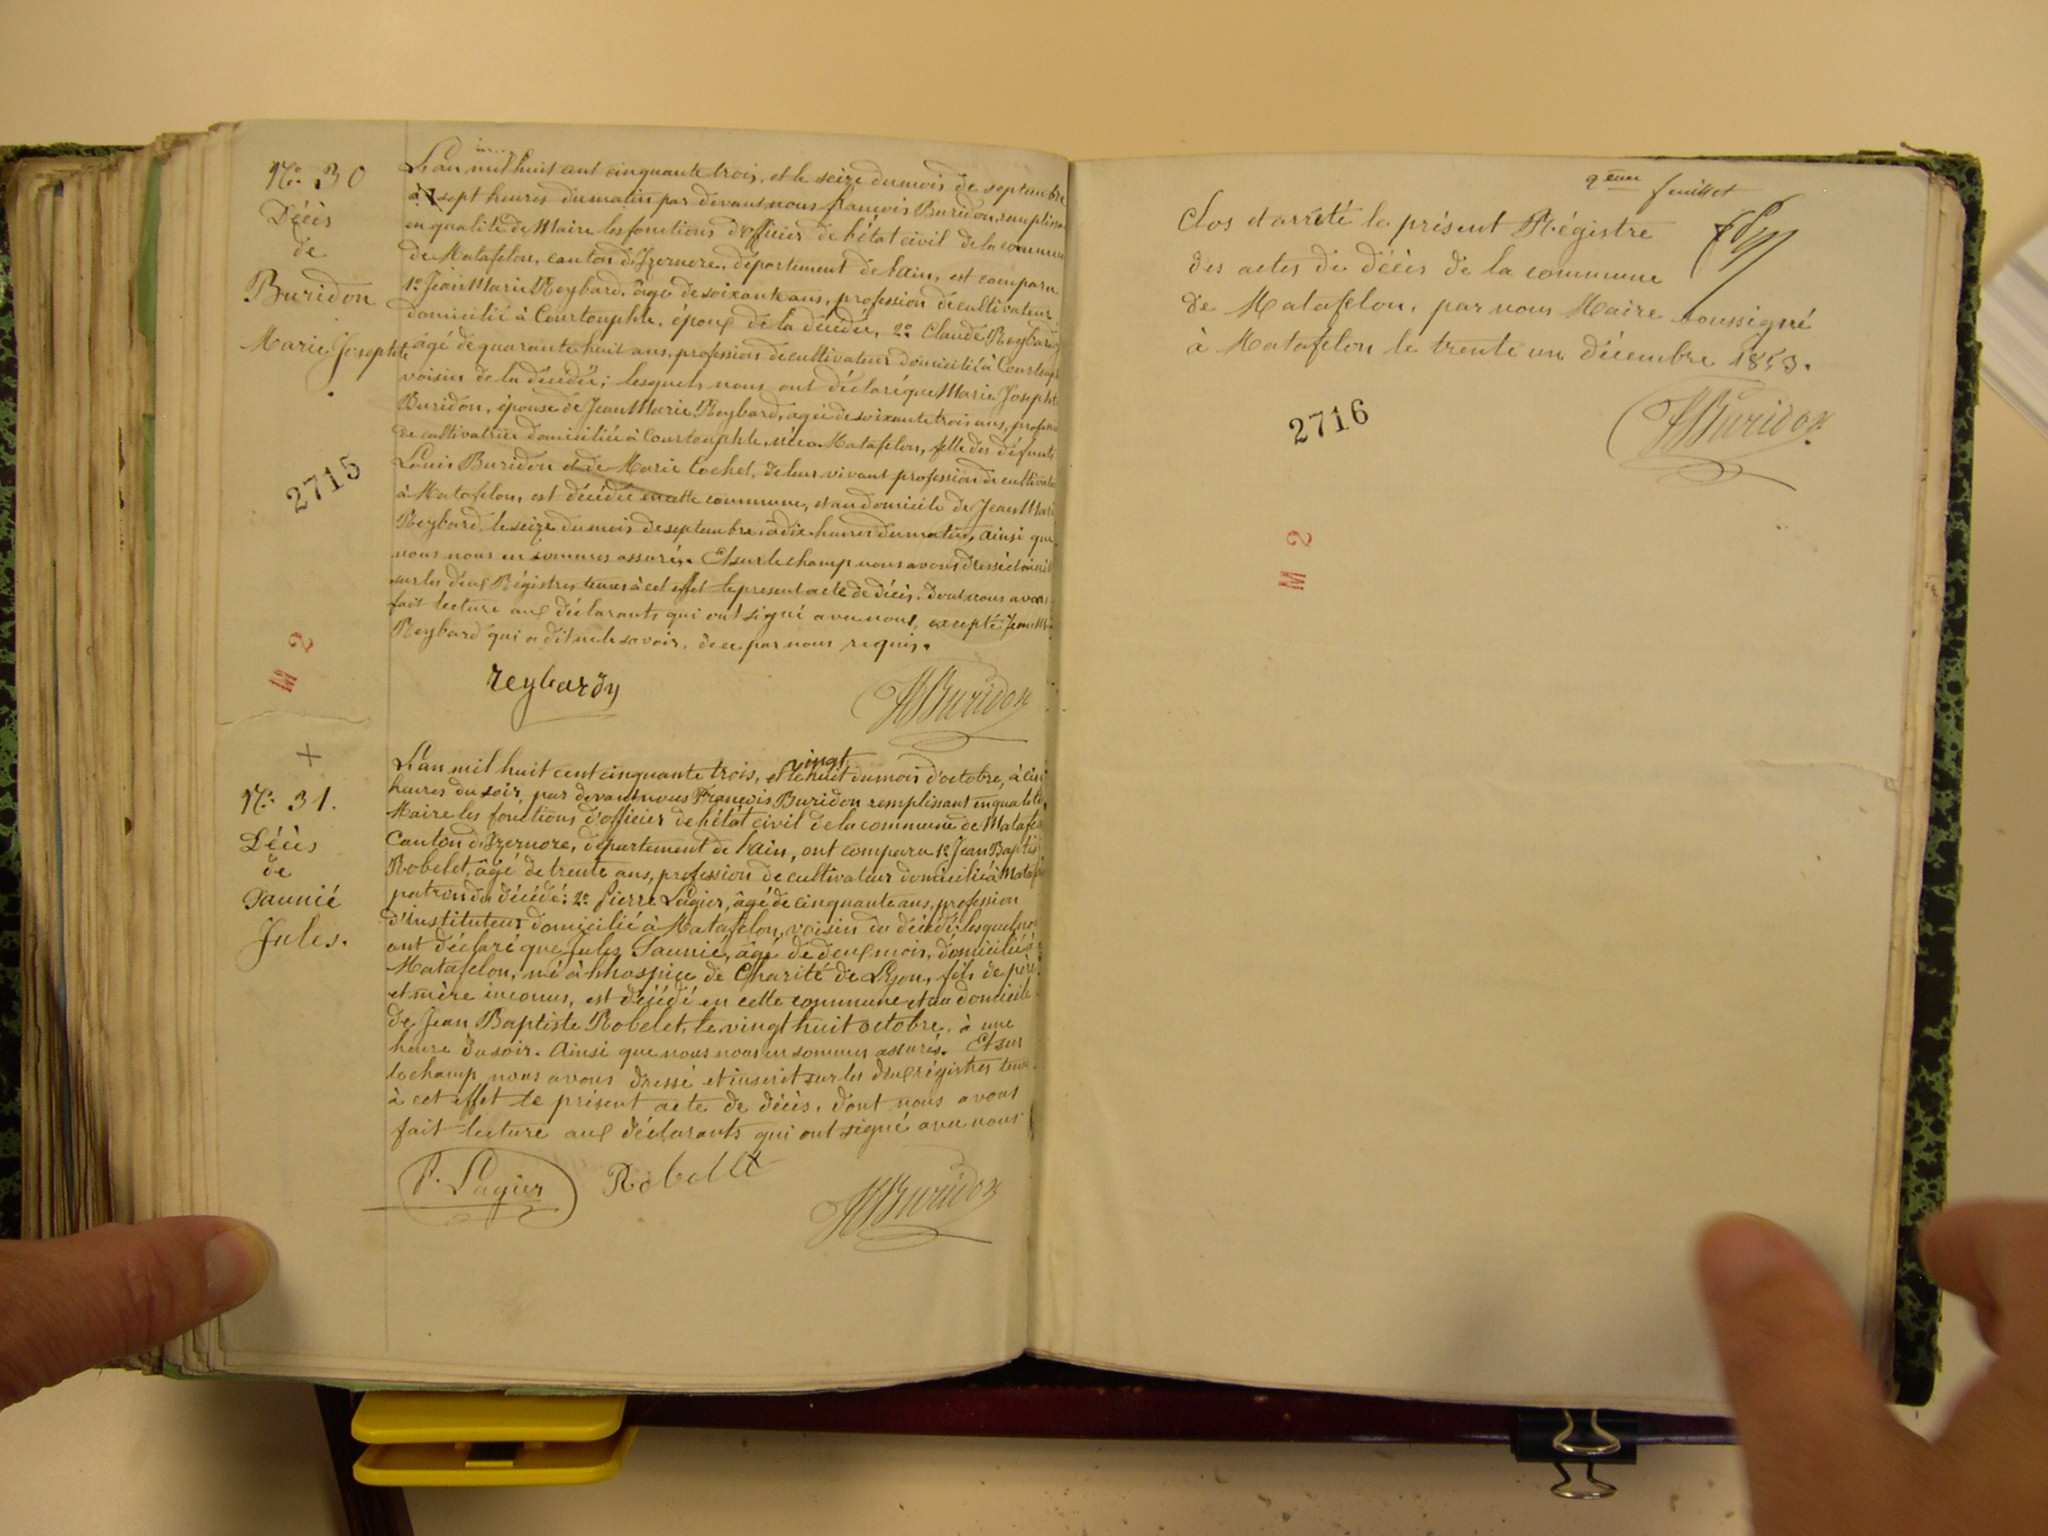 N°. 30
Décès
de
Buridon
Marie Josephte
2715
M 2
L'an mil huit cent cinquante trois, et le seize du mois de septembre
à sept heures du matin par devant nous françois Buridon, remplissa
en qualité de Maire les fonctions d'officier de l'état civil de la commune
de Matafelon, canton d'Izernore, département de l'ain, est comparu
1° Jean Marie Reybard, âgé de soixante ans, profession de cultivateur
domicilié à Courtouphle, époux de la décédée, 2° Claude Reybard
âgé de quarante huit ans, profession de cultivateur domicilié à Courtouph
voisin de la décédée; lesquels nous ont déclaré que Marie Josepht
Buridon, épouse de Jean Marie Reybard, âgée de soixante trois ans, profess
de cultivatrice domiciliée à Courtouphle, née à Matafelon, fille des défunts
Louis Buridon et de Marie Cochet, de leur vivant profession de cultivate
à Matafelon, est décédée en cette commune, et au domicile de Jean Mari
Reybard, le seize du mois de septembre à dix heures du matin, ainsi que
nous nous en sommes assuré. Et sur le champ nous avons dressé et inscrit
sur les deux Régistres tenus à cet effet le présent acte de décès. Dont nous avons
fait lecture aux déclarants qui ont signé avec nous, excepté Jean M
Reybard qui a dit ne le savoir, de ce par nous requis.
reybard
Buridon
+
N°. 31.
Décès
de
Saunié
Jules.
L'an mil huit cent cinquante trois, et le vingt huit du mois d'octobre, à cinq
heures du soir, par devant nous François Buridon remplissant en qualité de
Maire les fonctions d'officier de l'état civil de la commune de Matafe
Canton d'Izernore, département de l'ain, ont comparu 1° Jean Baptis
Robelet, âgé de trente ans, profession de cultivateur domicilié à Mataf
patron du décédé; 2° Pierre Lagier, âgé de cinquante ans, profession
d'instituteur domicilié à Matafelon, voisin du décédé, lesquels no
ont déclaré que Jules Saunié, âgé de deux mois, domicilié à
Matafelon, né à l'hospice de Charité de Lyon, fils de père
et mère inconnus, est décédé en cette commune et au domicile
de Jean Baptiste Robelet, le vingt huit octobre, à une
heure du soir. Ainsi que nous nous en sommes assurés. Et sur
le champ nous avons dressé et inscrit sur les deux régistres tenus
à cet effet le présent acte de décès, dont nous avons
fait lecture aux déclarants qui ont signé avec nous
P. Lagier Robelet Buridon
2eme feuillet
Clos et arrêté le présent Régistre
des actes de décès de la commune
de Matafelon, par nous Maire soussigné
à Matafelon le trente un décembre 1853.
Buridon
2716
M 2